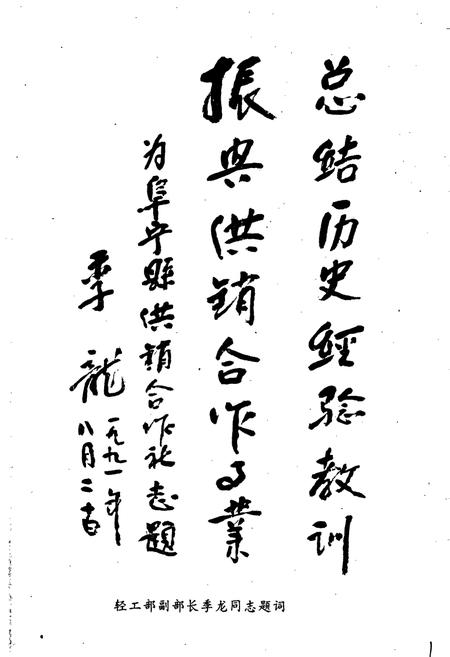 总结历史經验教训
振兴供销合作事業
为阜宁縣供销合作社志题
季龍
一九九一年
八月二十日
轻工部副部长季龙同志题词